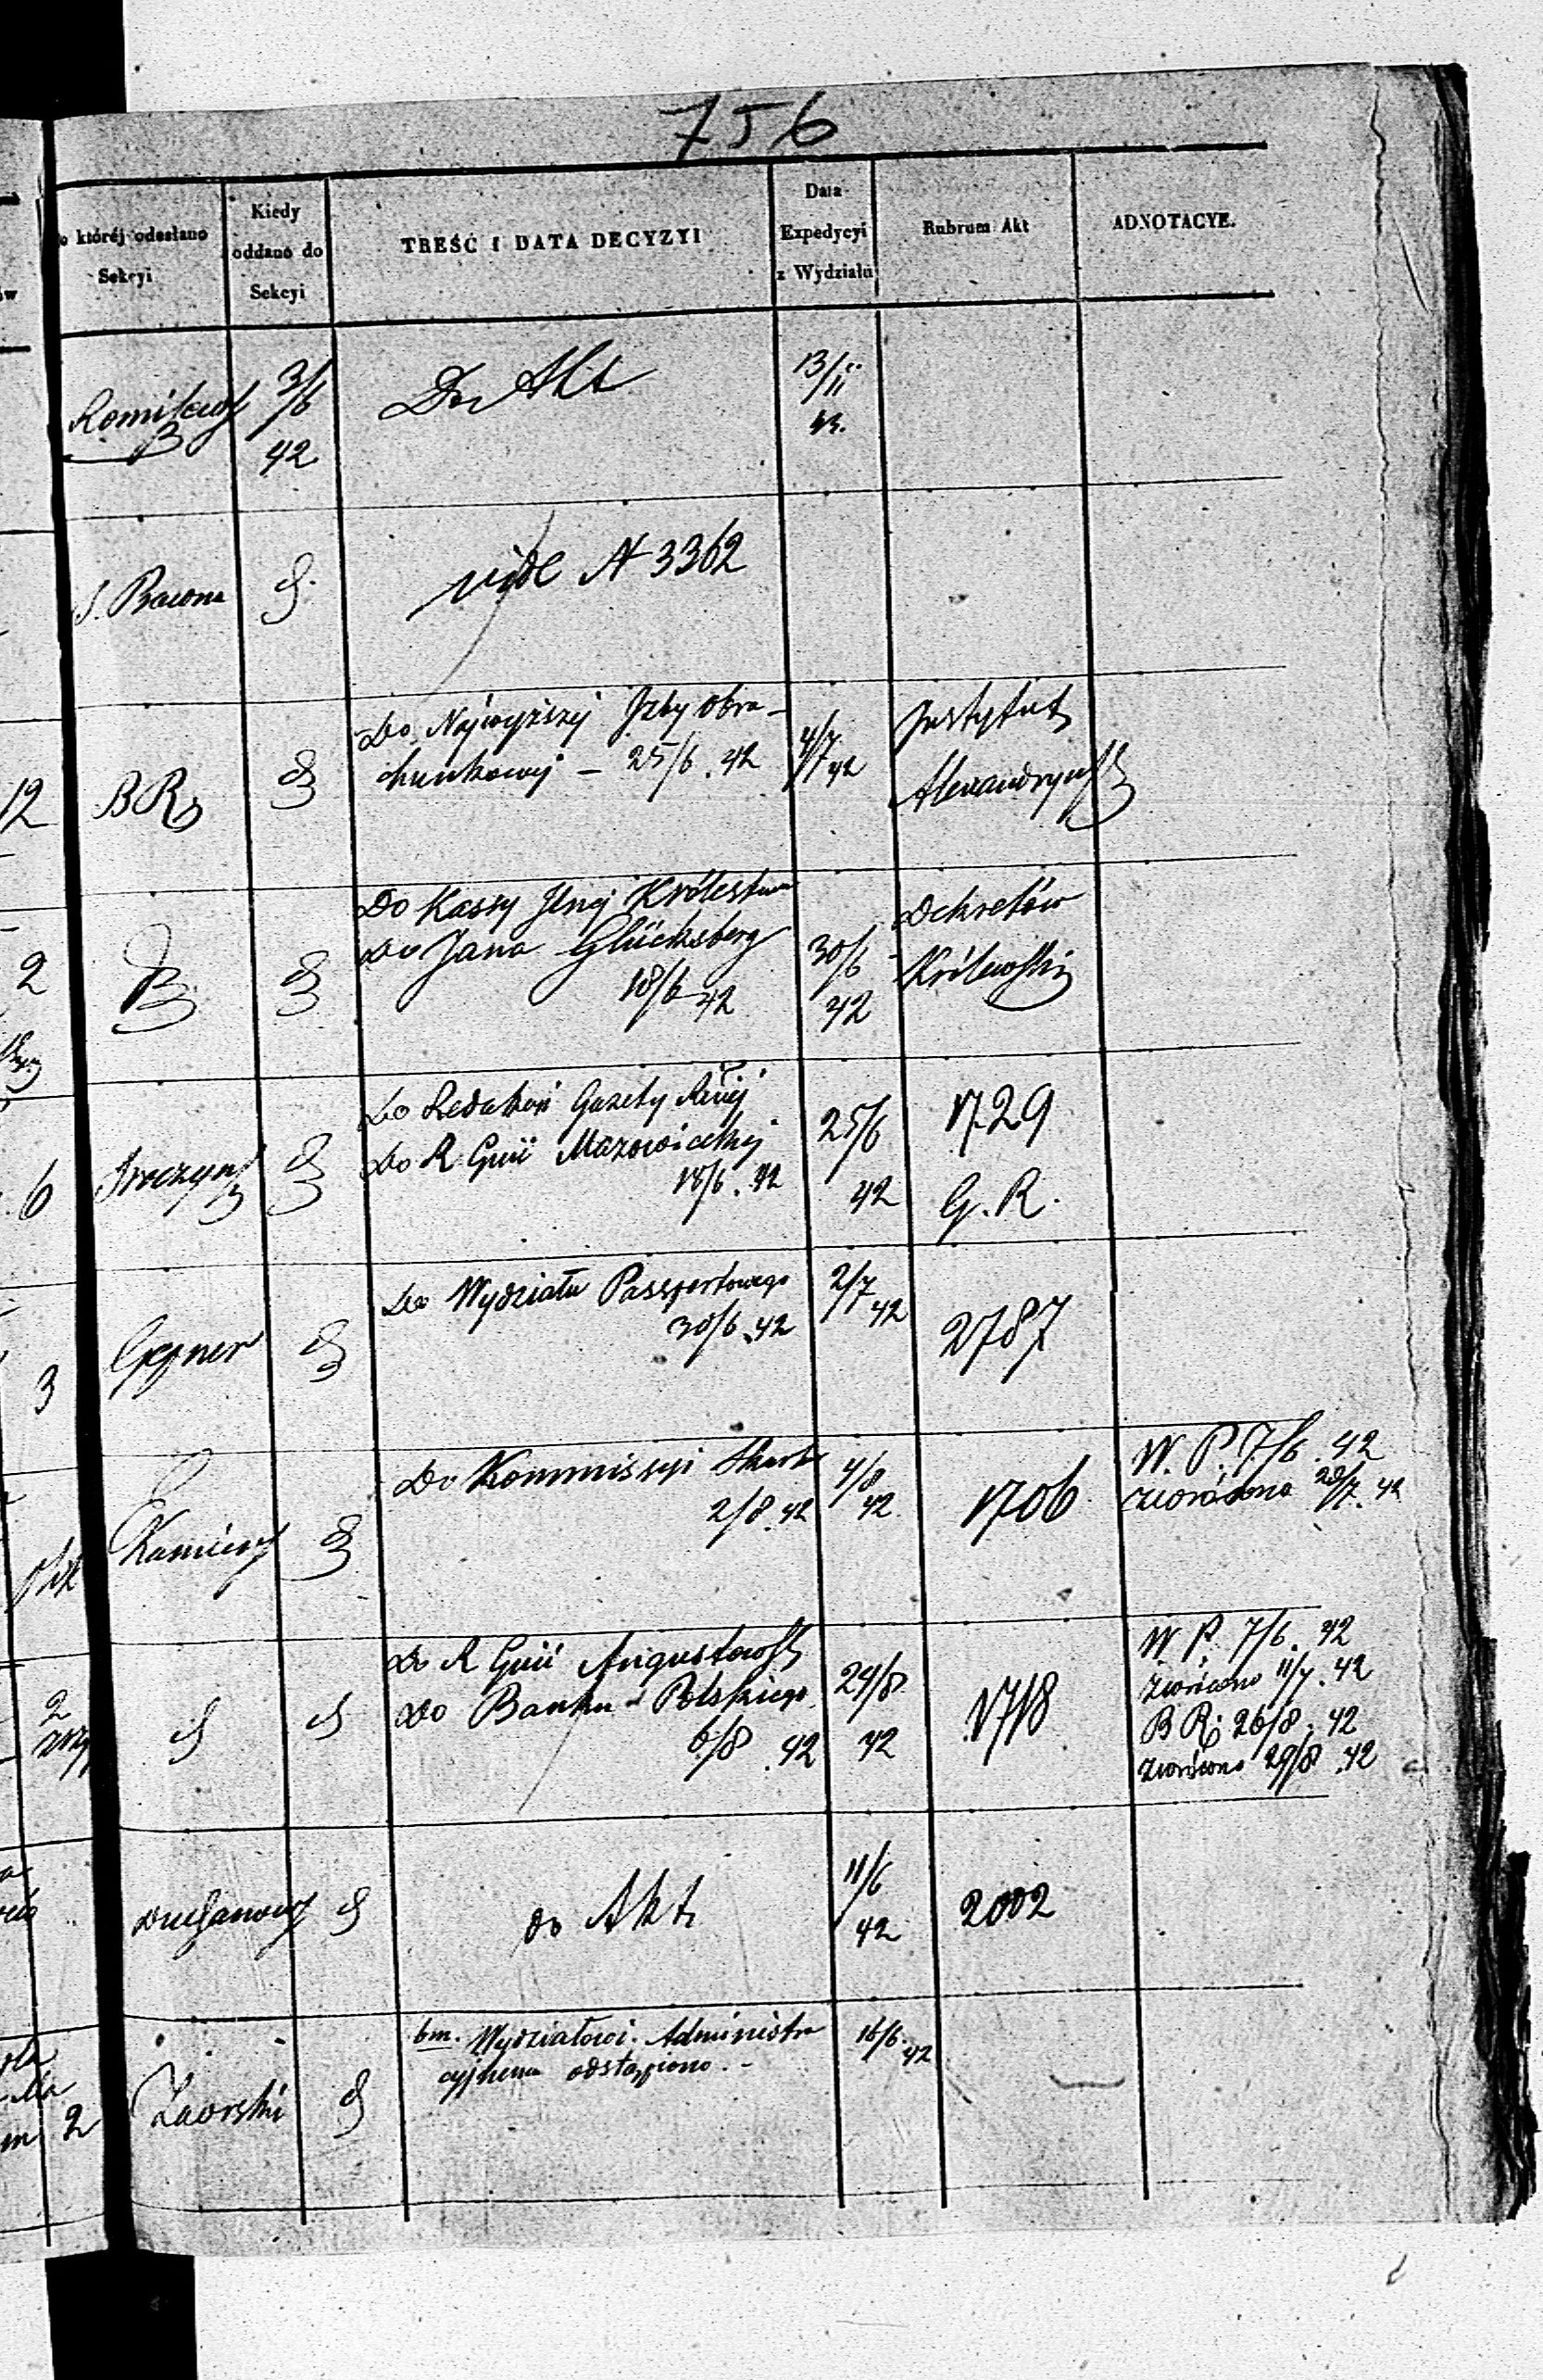 756
któréj odesłano
Sekcyi
Kiedy
oddano do
Sekcyi
TREŚĆ I DATA DECYZYI
Data
Expedycyi
z Wydziału
Rubrum Akt
ADNOTACYE.
3/6
42
Do Akt
13/11
S. Bacona
vide N 3362
12
BR
Do Najwyższej Izby Obra-
chunkowej - 25/6. 42
4/7 42
Instytut
2
Do Kassy Jlnej Królestwa
Do Jana Glücksberg
18/6 42
30/6
42
Dekretów
6
Do R. Gnii Mazowieckiej
18/6. 42
25/6
42
1729
G. R.
3
Gepner
Do Wydziału Passportowego
30/6. 42
2/7
42
2787
Do Kommissyi Skarbu
2/8. 42
4/8
42
1706
W. P. 7/6. 42
zwrócono 28/7. 42
2
Do R Gnii
Do Banku Polskiego
6/8. 42
24/8
42
1718
W. P. 7/6. 42
zwrócono 11/7. 42
B R: 26/8. 42
zwrócono 29/8. 42
do Akt
11/6
42
2002
2
Zaorski
bm. Wydziałowi Administra
cyjnemu odstąpiono. -
16/6. 42